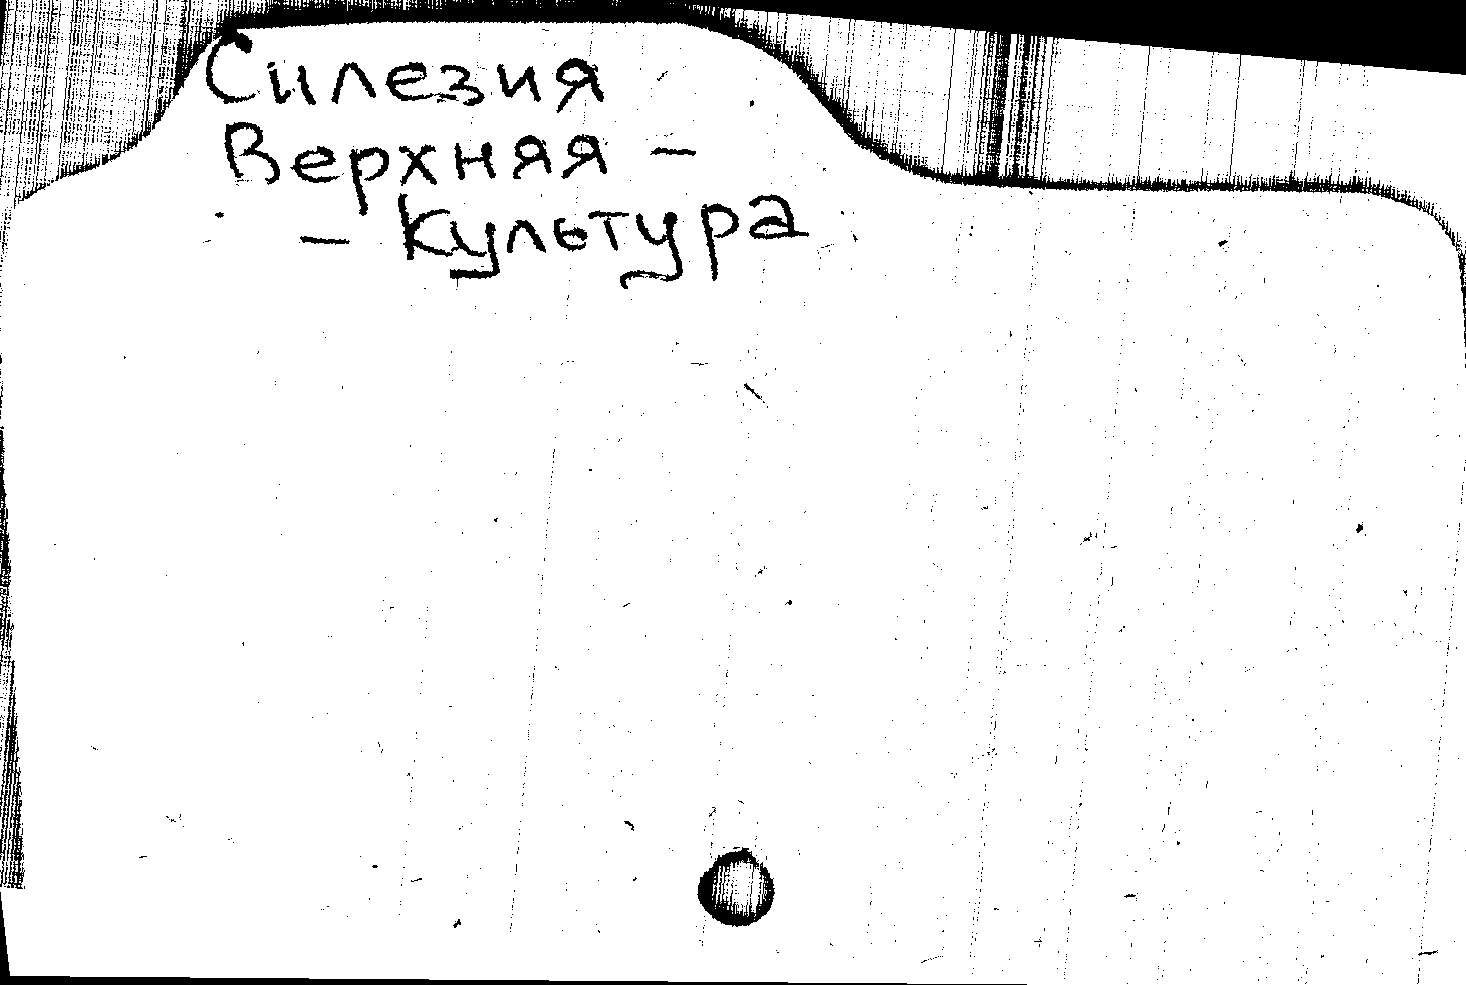 Силезия
Верхняя –
– Культура